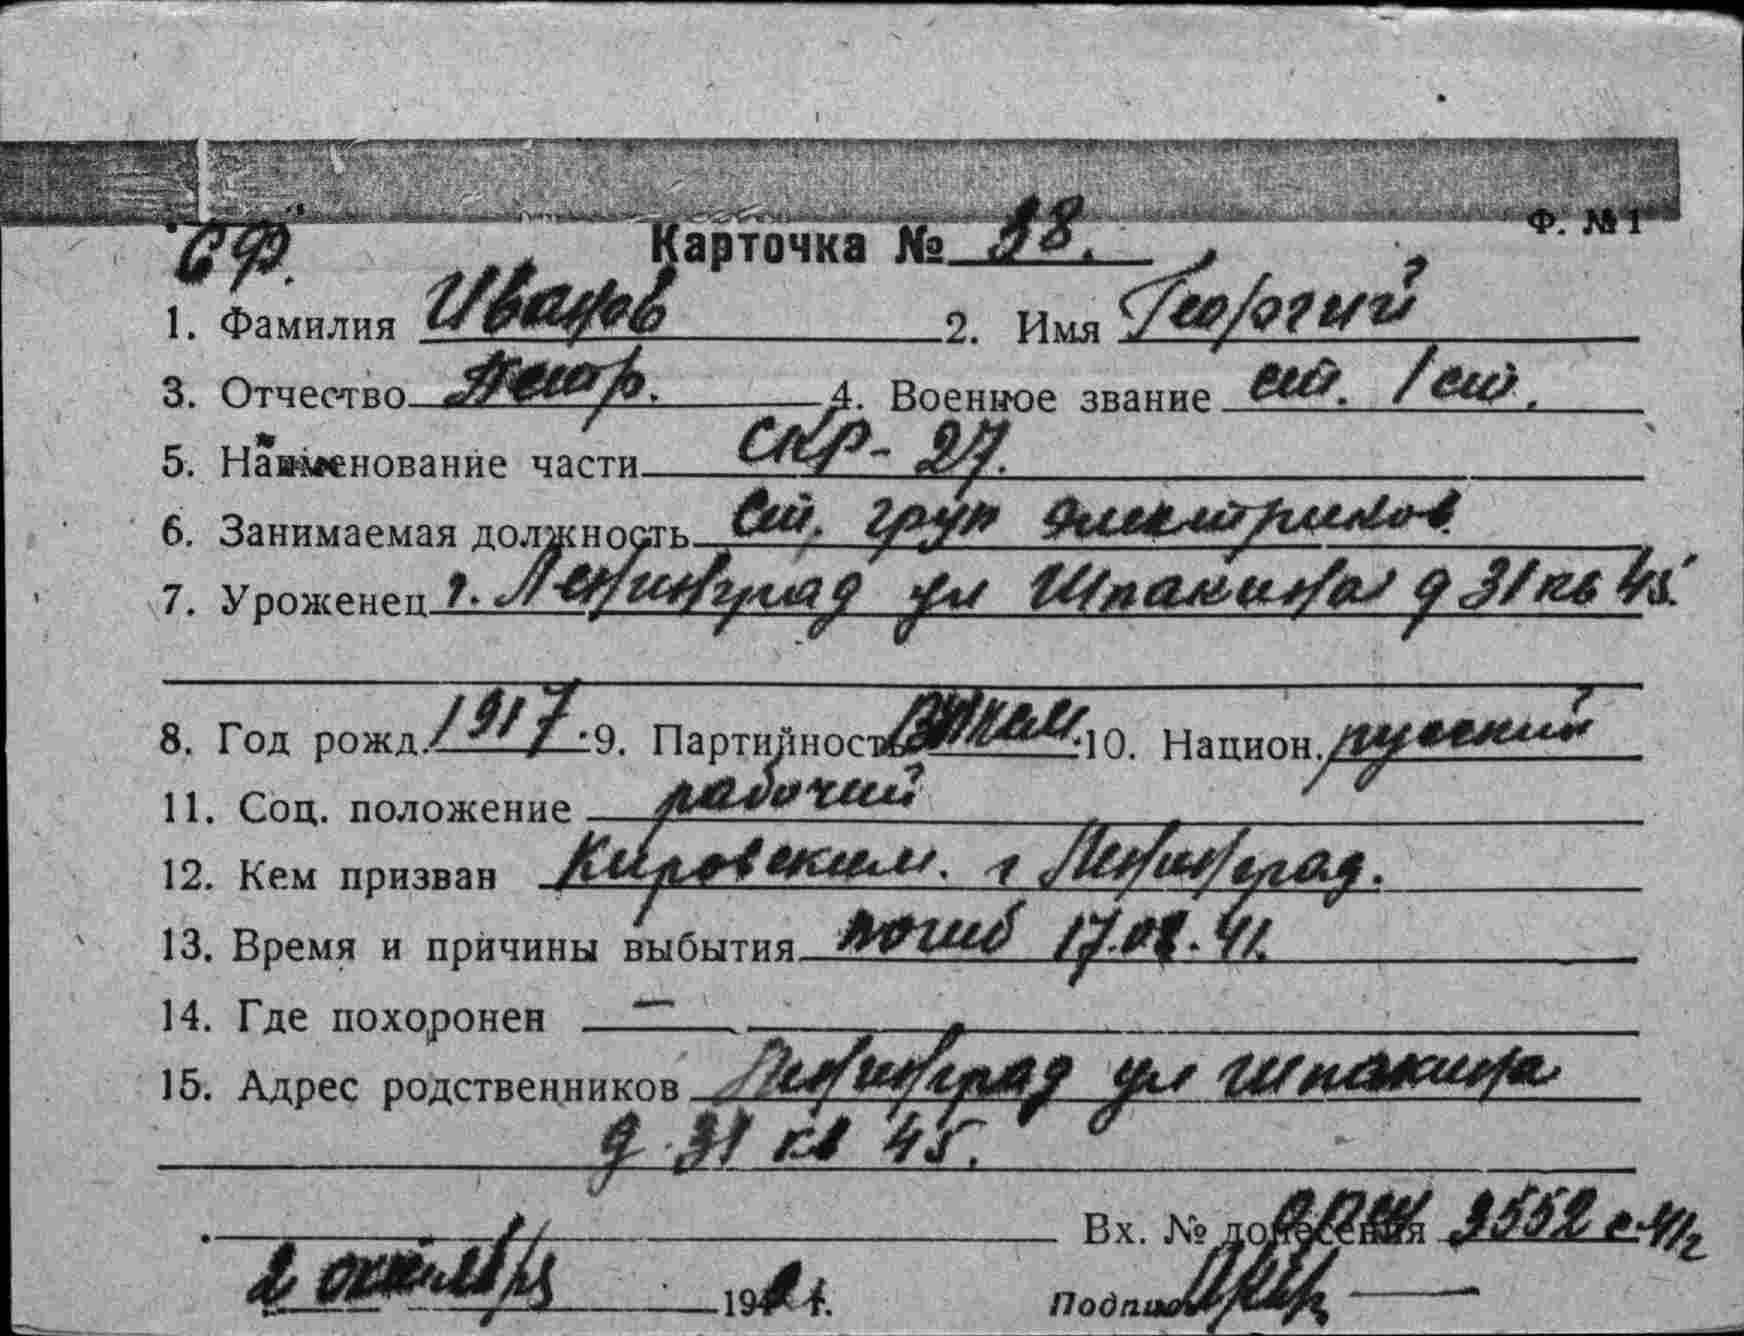 Ф. № 1
СФ. Карточка № 38.
1. Фамилия Иванов 2. Имя Георгий
3. Отчество Петр. 4. Военное звание ст. 1 ст.
5. Наименование части СКР-27.
6. Занимаемая должность Ст. груп электриков
7. Уроженец г. Ленинград ул Шпакина д 31 кв 45.
8. Год рожд. 1917 9. Партийность 10. Национ. русский
11. Соц. положение рабочий
12. Кем призван Кировским. г Ленинград.
13. Время и причины выбытия погиб 17.08.41.
14. Где похоронен —
15. Адрес родственников Ленинград ул Шпакина
д. 31 кв 45.
Вх. № донесения 9552 с-41г
2 октября 19 г. Подпись